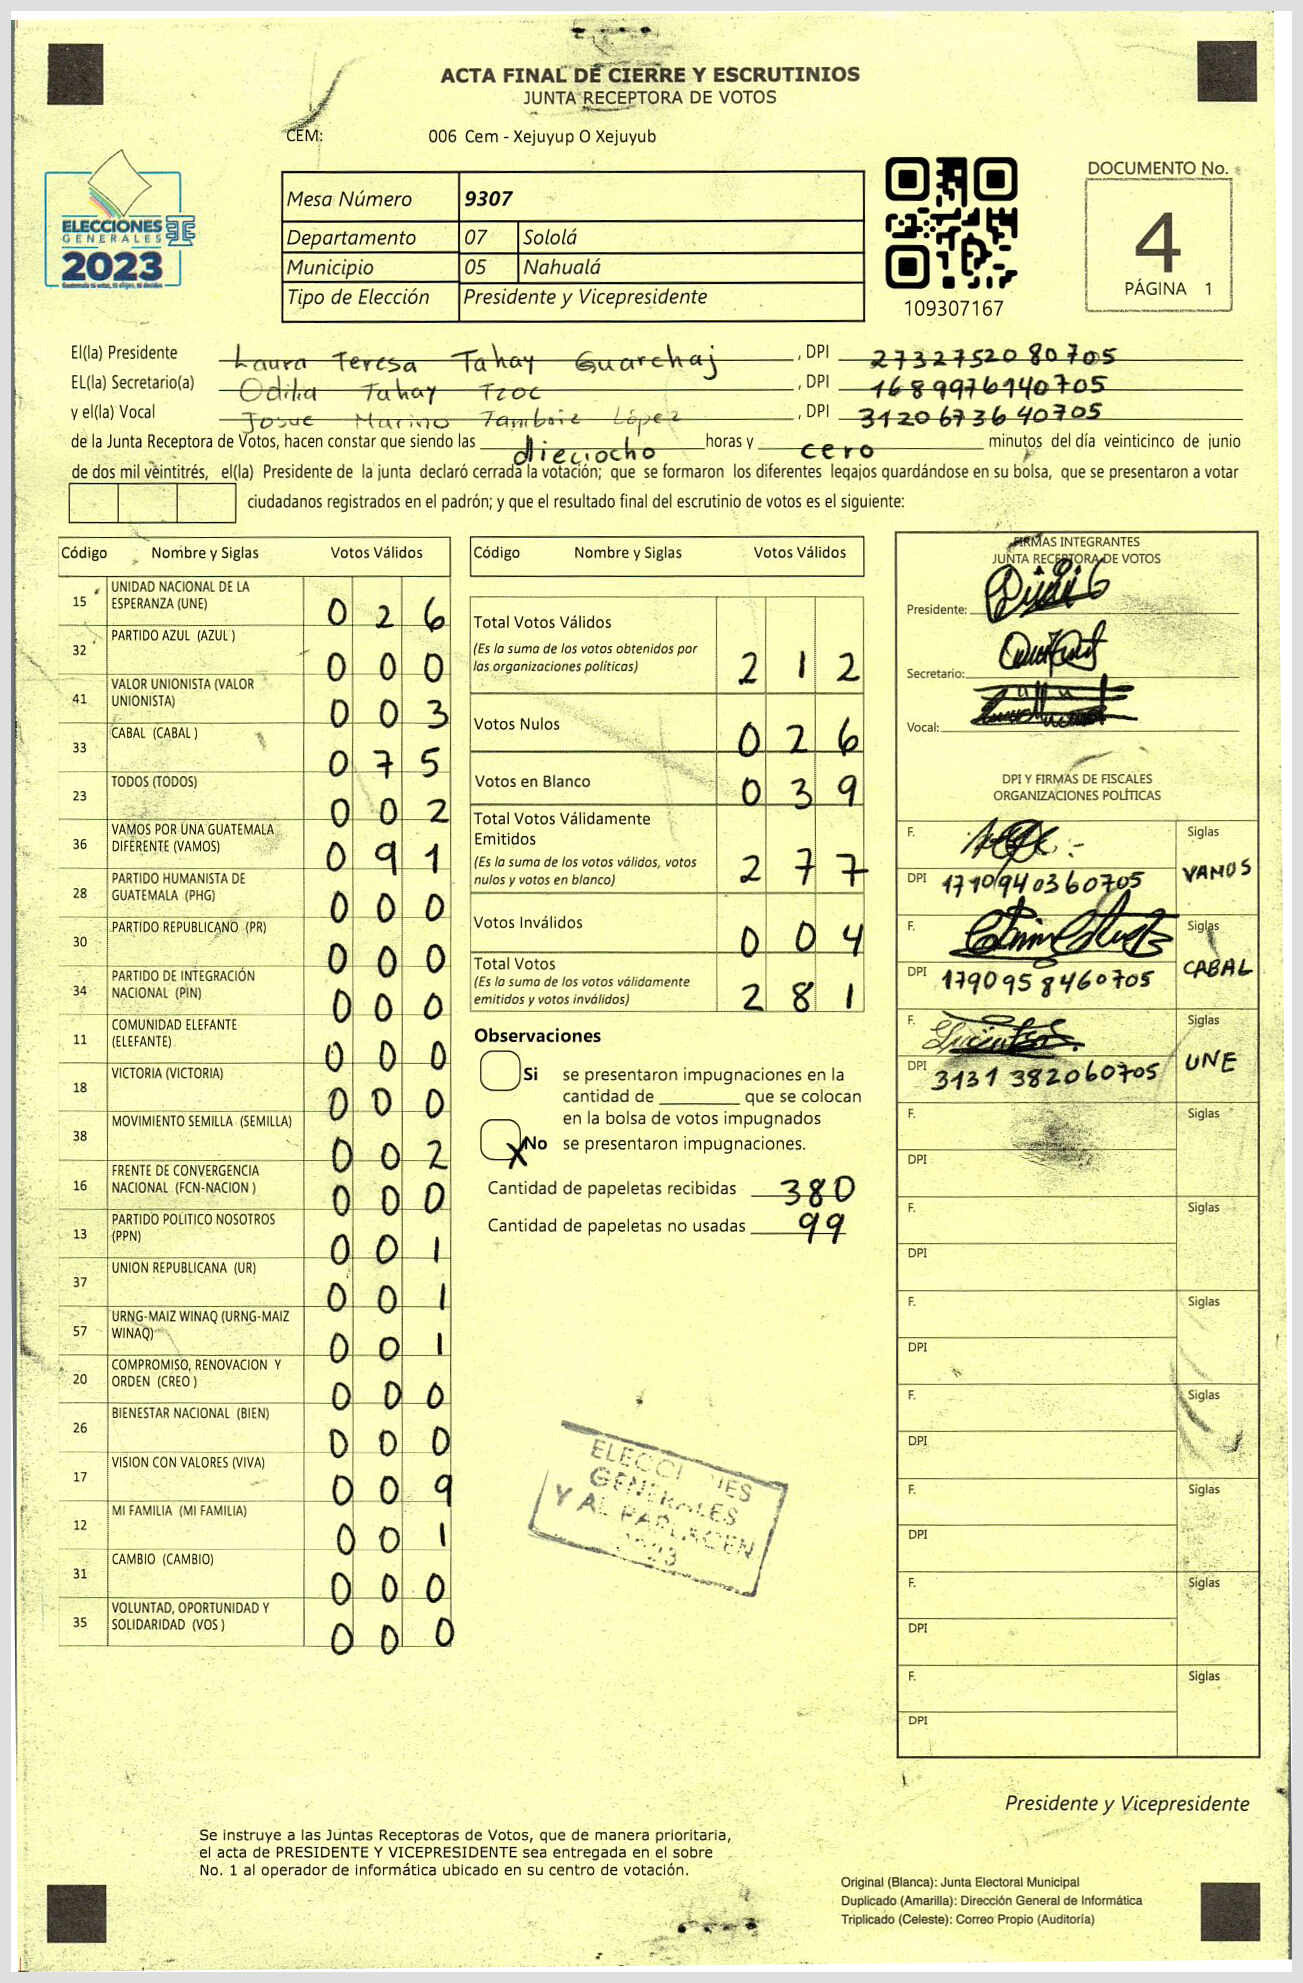 ACTA FINAL DE CIERRE Y ESCRUTINIOS
JUNTA RECEPTORA DE VOTOS
CEM: 006 Cem - Xejuyup O Xejuyub
ELECCIONES
GENERALES
2023
Mesa Número 9307
Departamento 07 Sololá
Municipio 05 Nahualá
Tipo de Elección Presidente y Vicepresidente
109307167
DOCUMENTO No.
4
PÁGINA 1
El(la) Presidente Laura Teresa Tahay Guarchaj , DPI 2732752080705
EL(la) Secretario(a) Odilia Tahay Tzoc , DPI 1689976140705
y el(la) Vocal Josue Marino Tambriz López , DPI 3120673640705
de la Junta Receptora de Votos, hacen constar que siendo las dieciocho horas y cero minutos del día veinticinco de junio
de dos mil veintitrés, el(la) Presidente de la junta declaró cerrada la votación; que se formaron los diferentes legajos guardándose en su bolsa, que se presentaron a votar
ciudadanos registrados en el padrón; y que el resultado final del escrutinio de votos es el siguiente:
Código Nombre y Siglas Votos Válidos
15 UNIDAD NACIONAL DE LA
ESPERANZA (UNE) 0 2 6
32 PARTIDO AZUL (AZUL ) 0 0 0
41 VALOR UNIONISTA (VALOR
UNIONISTA) 0 0 3
33 CABAL (CABAL ) 0 7 5
23 TODOS (TODOS) 0 0 2
36 VAMOS POR UNA GUATEMALA
DIFERENTE (VAMOS) 0 9 1
28 PARTIDO HUMANISTA DE
GUATEMALA (PHG) 0 0 0
30 PARTIDO REPUBLICANO (PR) 0 0 0
34 PARTIDO DE INTEGRACIÓN
NACIONAL (PIN) 0 0 0
11 COMUNIDAD ELEFANTE
(ELEFANTE) 0 0 0
18 VICTORIA (VICTORIA) 0 0 0
38 MOVIMIENTO SEMILLA (SEMILLA) 0 0 2
16 FRENTE DE CONVERGENCIA
NACIONAL (FCN-NACION ) 0 0 0
13 PARTIDO POLITICO NOSOTROS
(PPN) 0 0 1
37 UNION REPUBLICANA (UR) 0 0 1
57 URNG-MAIZ WINAQ (URNG-MAIZ
WINAQ) 0 0 1
20 COMPROMISO, RENOVACION Y
ORDEN (CREO ) 0 0 0
26 BIENESTAR NACIONAL (BIEN) 0 0 0
17 VISION CON VALORES (VIVA) 0 0 9
12 MI FAMILIA (MI FAMILIA) 0 0 1
31 CAMBIO (CAMBIO) 0 0 0
35 VOLUNTAD, OPORTUNIDAD Y
SOLIDARIDAD (VOS ) 0 0 0
Código Nombre y Siglas Votos Válidos
Total Votos Válidos
(Es la suma de los votos obtenidos por
las organizaciones políticas) 2 1 2
Votos Nulos 0 2 6
Votos en Blanco 0 3 9
Total Votos Válidamente
Emitidos
(Es la suma de los votos válidos, votos
nulos y votos en blanco) 2 7 7
Votos Inválidos 0 0 4
Total Votos
(Es la suma de los votos válidamente
emitidos y votos inválidos) 2 8 1
Observaciones
Si se presentaron impugnaciones en la
cantidad de ________ que se colocan
en la bolsa de votos impugnados
X No se presentaron impugnaciones.
Cantidad de papeletas recibidas 380
Cantidad de papeletas no usadas 99
ELECCIONES
GENERALES
Y AL PARLACEN
2023
FIRMAS INTEGRANTES
JUNTA RECEPTORA DE VOTOS
Presidente:
Secretario:
Vocal:
DPI Y FIRMAS DE FISCALES
ORGANIZACIONES POLÍTICAS
F. Siglas
DPI 1710940360705 VAMOS
F. Siglas
DPI 1790958460705 CABAL
F. Siglas
DPI 3131382060705 UNE
F. Siglas
DPI
F. Siglas
DPI
F. Siglas
DPI
F. Siglas
DPI
F. Siglas
DPI
F. Siglas
DPI
F. Siglas
DPI
Presidente y Vicepresidente
Se instruye a las Juntas Receptoras de Votos, que de manera prioritaria,
el acta de PRESIDENTE Y VICEPRESIDENTE sea entregada en el sobre
No. 1 al operador de informática ubicado en su centro de votación.
Original (Blanca): Junta Electoral Municipal
Duplicado (Amarilla): Dirección General de Informática
Triplicado (Celeste): Correo Propio (Auditoría)